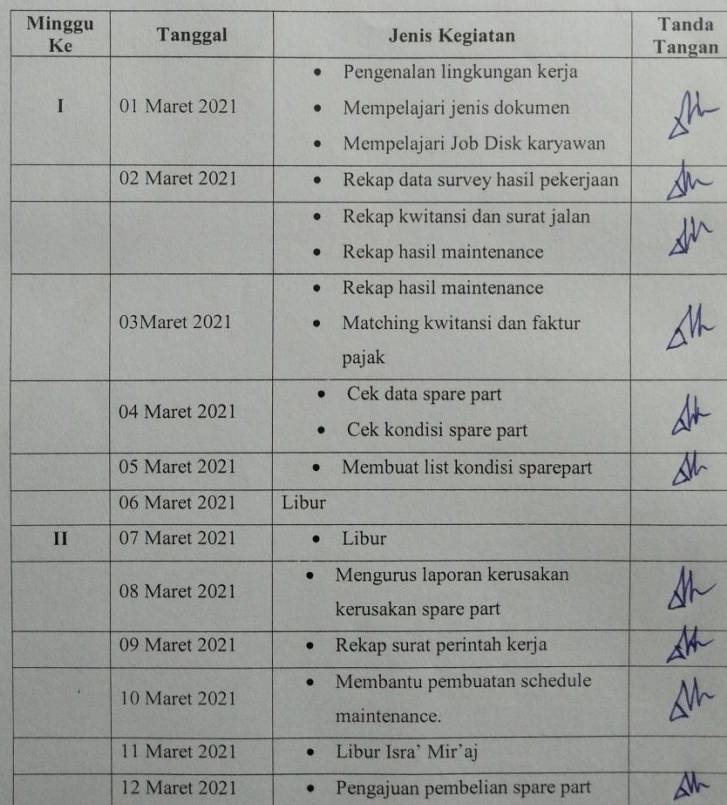 Minggu Ke Tanggal Jenis Kegiatan Tanda Tangan
I 01 Maret 2021 • Pengenalan lingkungan kerja
• Mempelajari jenis dokumen
• Mempelajari Job Disk karyawan
02 Maret 2021 • Rekap data survey hasil pekerjaan
• Rekap kwitansi dan surat jalan
• Rekap hasil maintenance
03Maret 2021 • Rekap hasil maintenance
• Matching kwitansi dan faktur
pajak
04 Maret 2021 • Cek data spare part
• Cek kondisi spare part
05 Maret 2021 • Membuat list kondisi sparepart
06 Maret 2021 Libur
II 07 Maret 2021 • Libur
08 Maret 2021 • Mengurus laporan kerusakan
kerusakan spare part
09 Maret 2021 • Rekap surat perintah kerja
10 Maret 2021 • Membantu pembuatan schedule
maintenance.
11 Maret 2021 • Libur Isra' Mir'aj
12 Maret 2021 • Pengajuan pembelian spare part